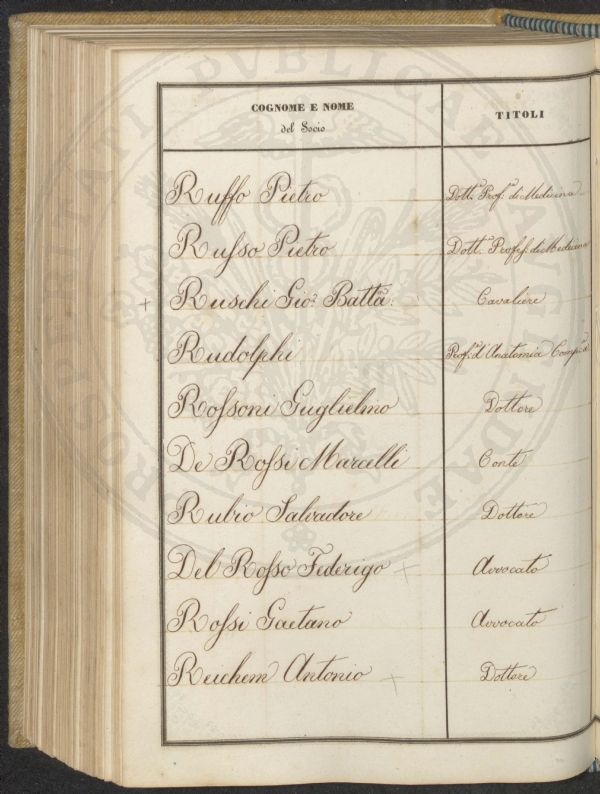 COGNOME E NOME
del Socio
TITOLI
Ruffo Pietro
Dott.e Prof.e di Medicina
Rufso Pietro
Dott.e Profs. di Medicina
+ Ruschi Gio: Batta
Cavaliere
Rudolphi
Prof.e d'Anatomia Comp.a
Rofsoni Guglielmo
Dottore
De Rofsi Marcelli
Conte
Rubio Salvadore
Dottore
Del Rofso Federigo +
Avvocato
Rofsi Gaetano
Avvocato
Reichem Antonio +
Dottore